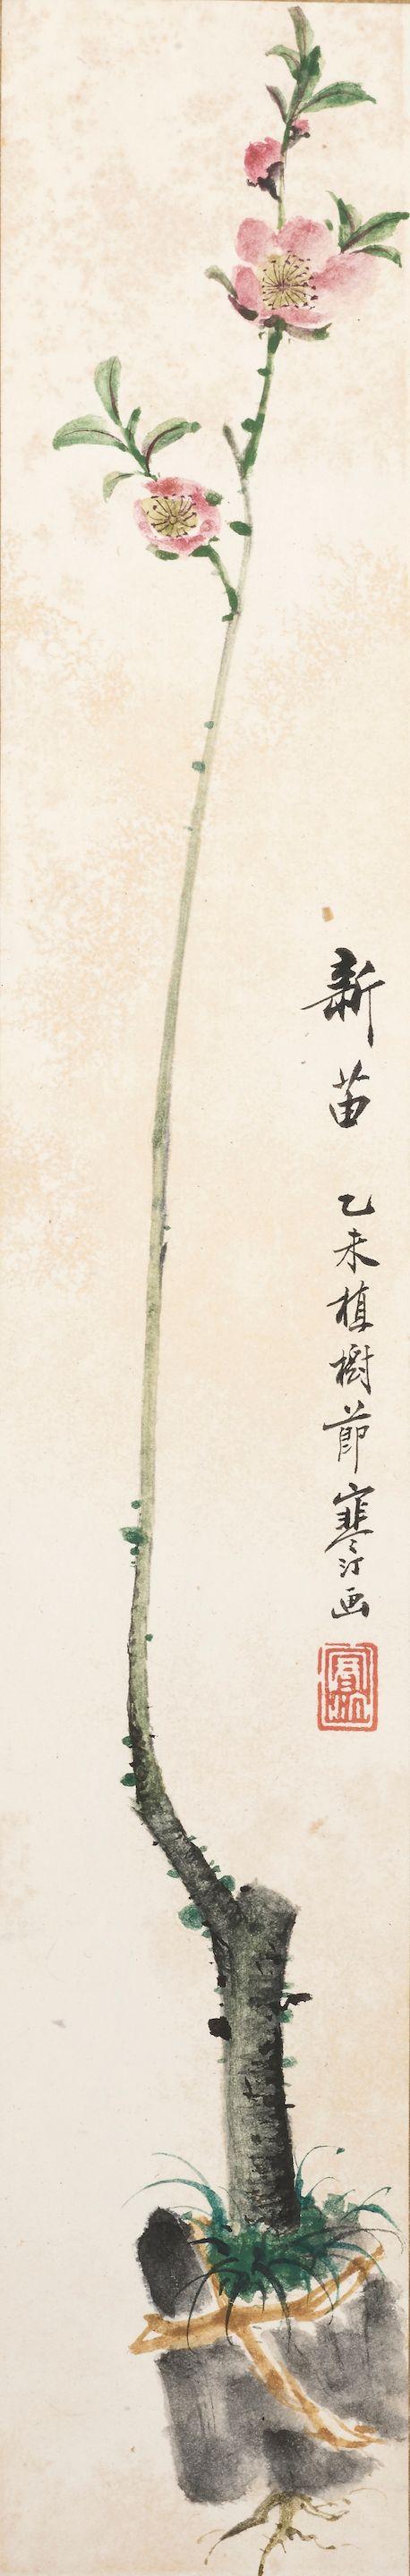 新苗
乙未植樹節寒汀画